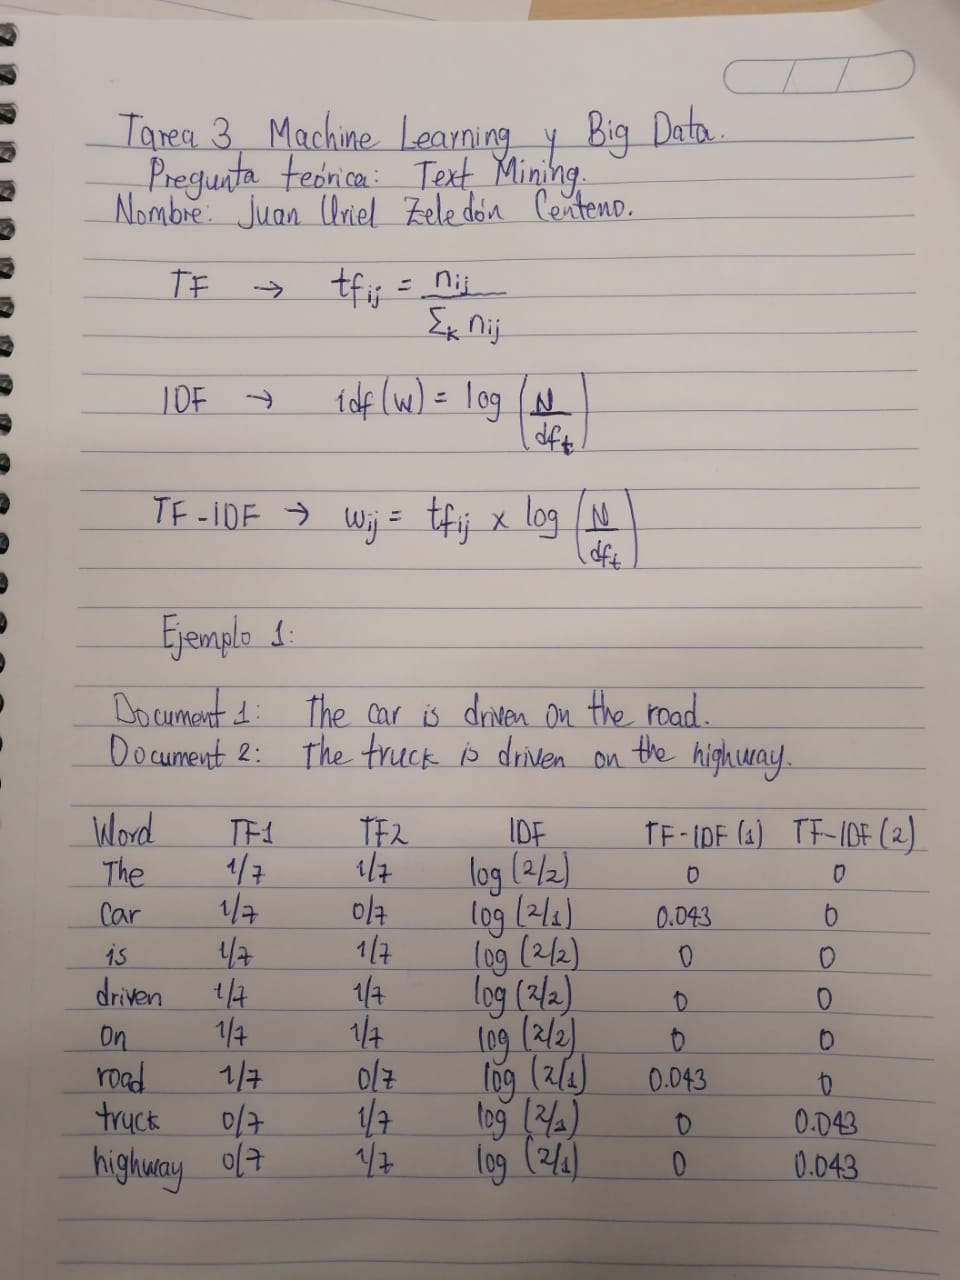 Tarea 3 Machine Learning y Big Data.
Pregunta teórica: Text Mining.
Nombre: Juan Uriel Zeledón Centeno.
TF → tfij = nij / Σk nij
IDF → idf(w) = log (N / dft)
TF-IDF → wij = tfij x log (N / dft)
Ejemplo 1:
Document 1: The car is driven on the road.
Document 2: The truck is driven on the highway.
Word TF1 TF2 IDF TF-IDF (1) TF-IDF (2)
The 1/7 1/7 log (2/2) 0 0
Car 1/7 0/7 log (2/1) 0.043 0
is 1/7 1/7 log (2/2) 0 0
driven 1/7 1/7 log (2/2) 0 0
On 1/7 1/7 log (2/2) 0 0
road 1/7 0/7 log (2/1) 0.043 0
truck 0/7 1/7 log (2/1) 0 0.043
highway 0/7 1/7 log (2/1) 0 0.043